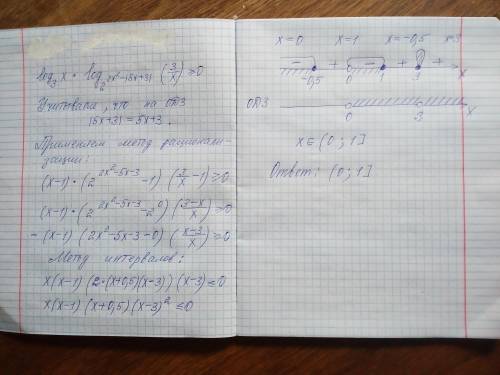 log₃ x · log_{2^{2x²-|5x+3|}} (3/x) ≥ 0
Учитывали, что на ОДЗ
|5x+3| = 5x+3.
Применяем метод рационали-
зации:
(x-1)·(2^{2x²-5x-3} -1) (3/x -1) ≥ 0
(x-1)·(2^{2x²-5x-3} - 2⁰) ((3-x)/x) ≥ 0
- (x-1) (2x²-5x-3-0) ((x-3)/x) ≥ 0
Метод интервалов:
x(x-1) (2·(x+0,5)(x-3)) (x-3) ≤ 0
x(x-1) (x+0,5) (x-3)² ≤ 0
x=0 x=1 x=-0,5 x=3
- + - + +
-0,5 0 1 3 x
ОДЗ
0 3 x
x ∈ (0; 1]
Ответ: (0; 1]